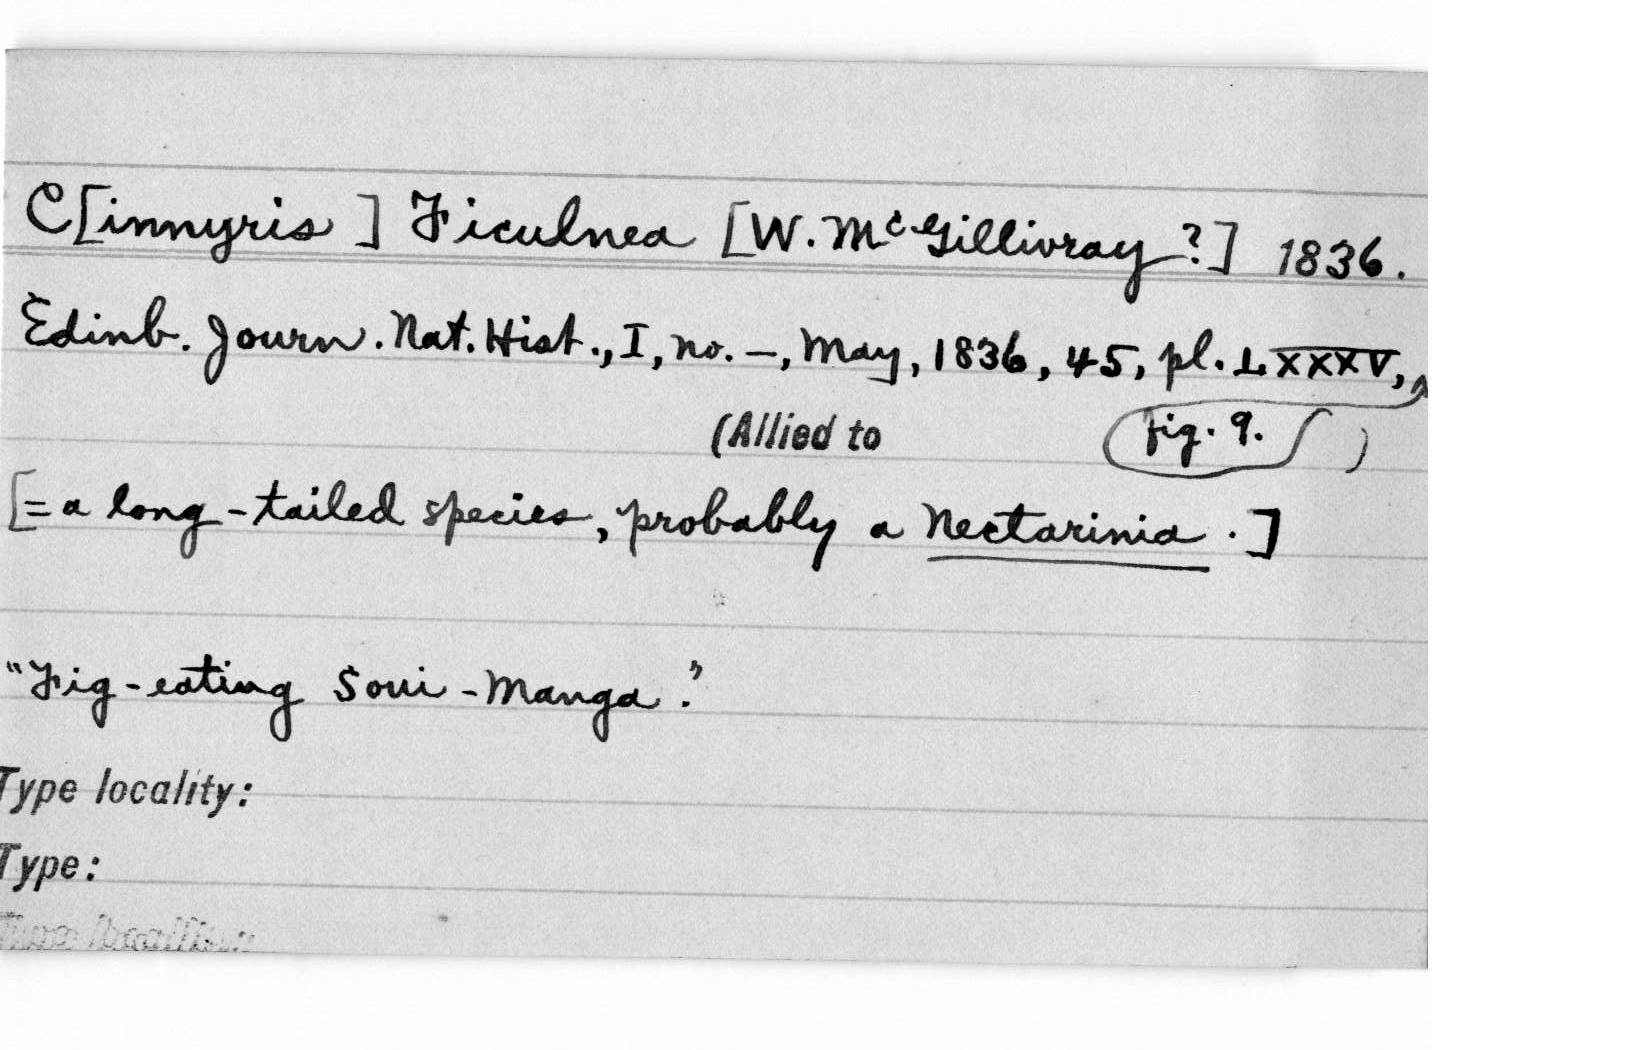 C[innyris] Ficulnea [W. McGillivray?] 1836.
Edinb. Journ. Nat. Hist., I, no. –, May, 1836, 45, pl. LXXXV,
(Allied to fig. 9. )
[= a long-tailed species, probably a Nectarinia.]
"Fig-eating Soui-Manga."
Type locality:
Type: